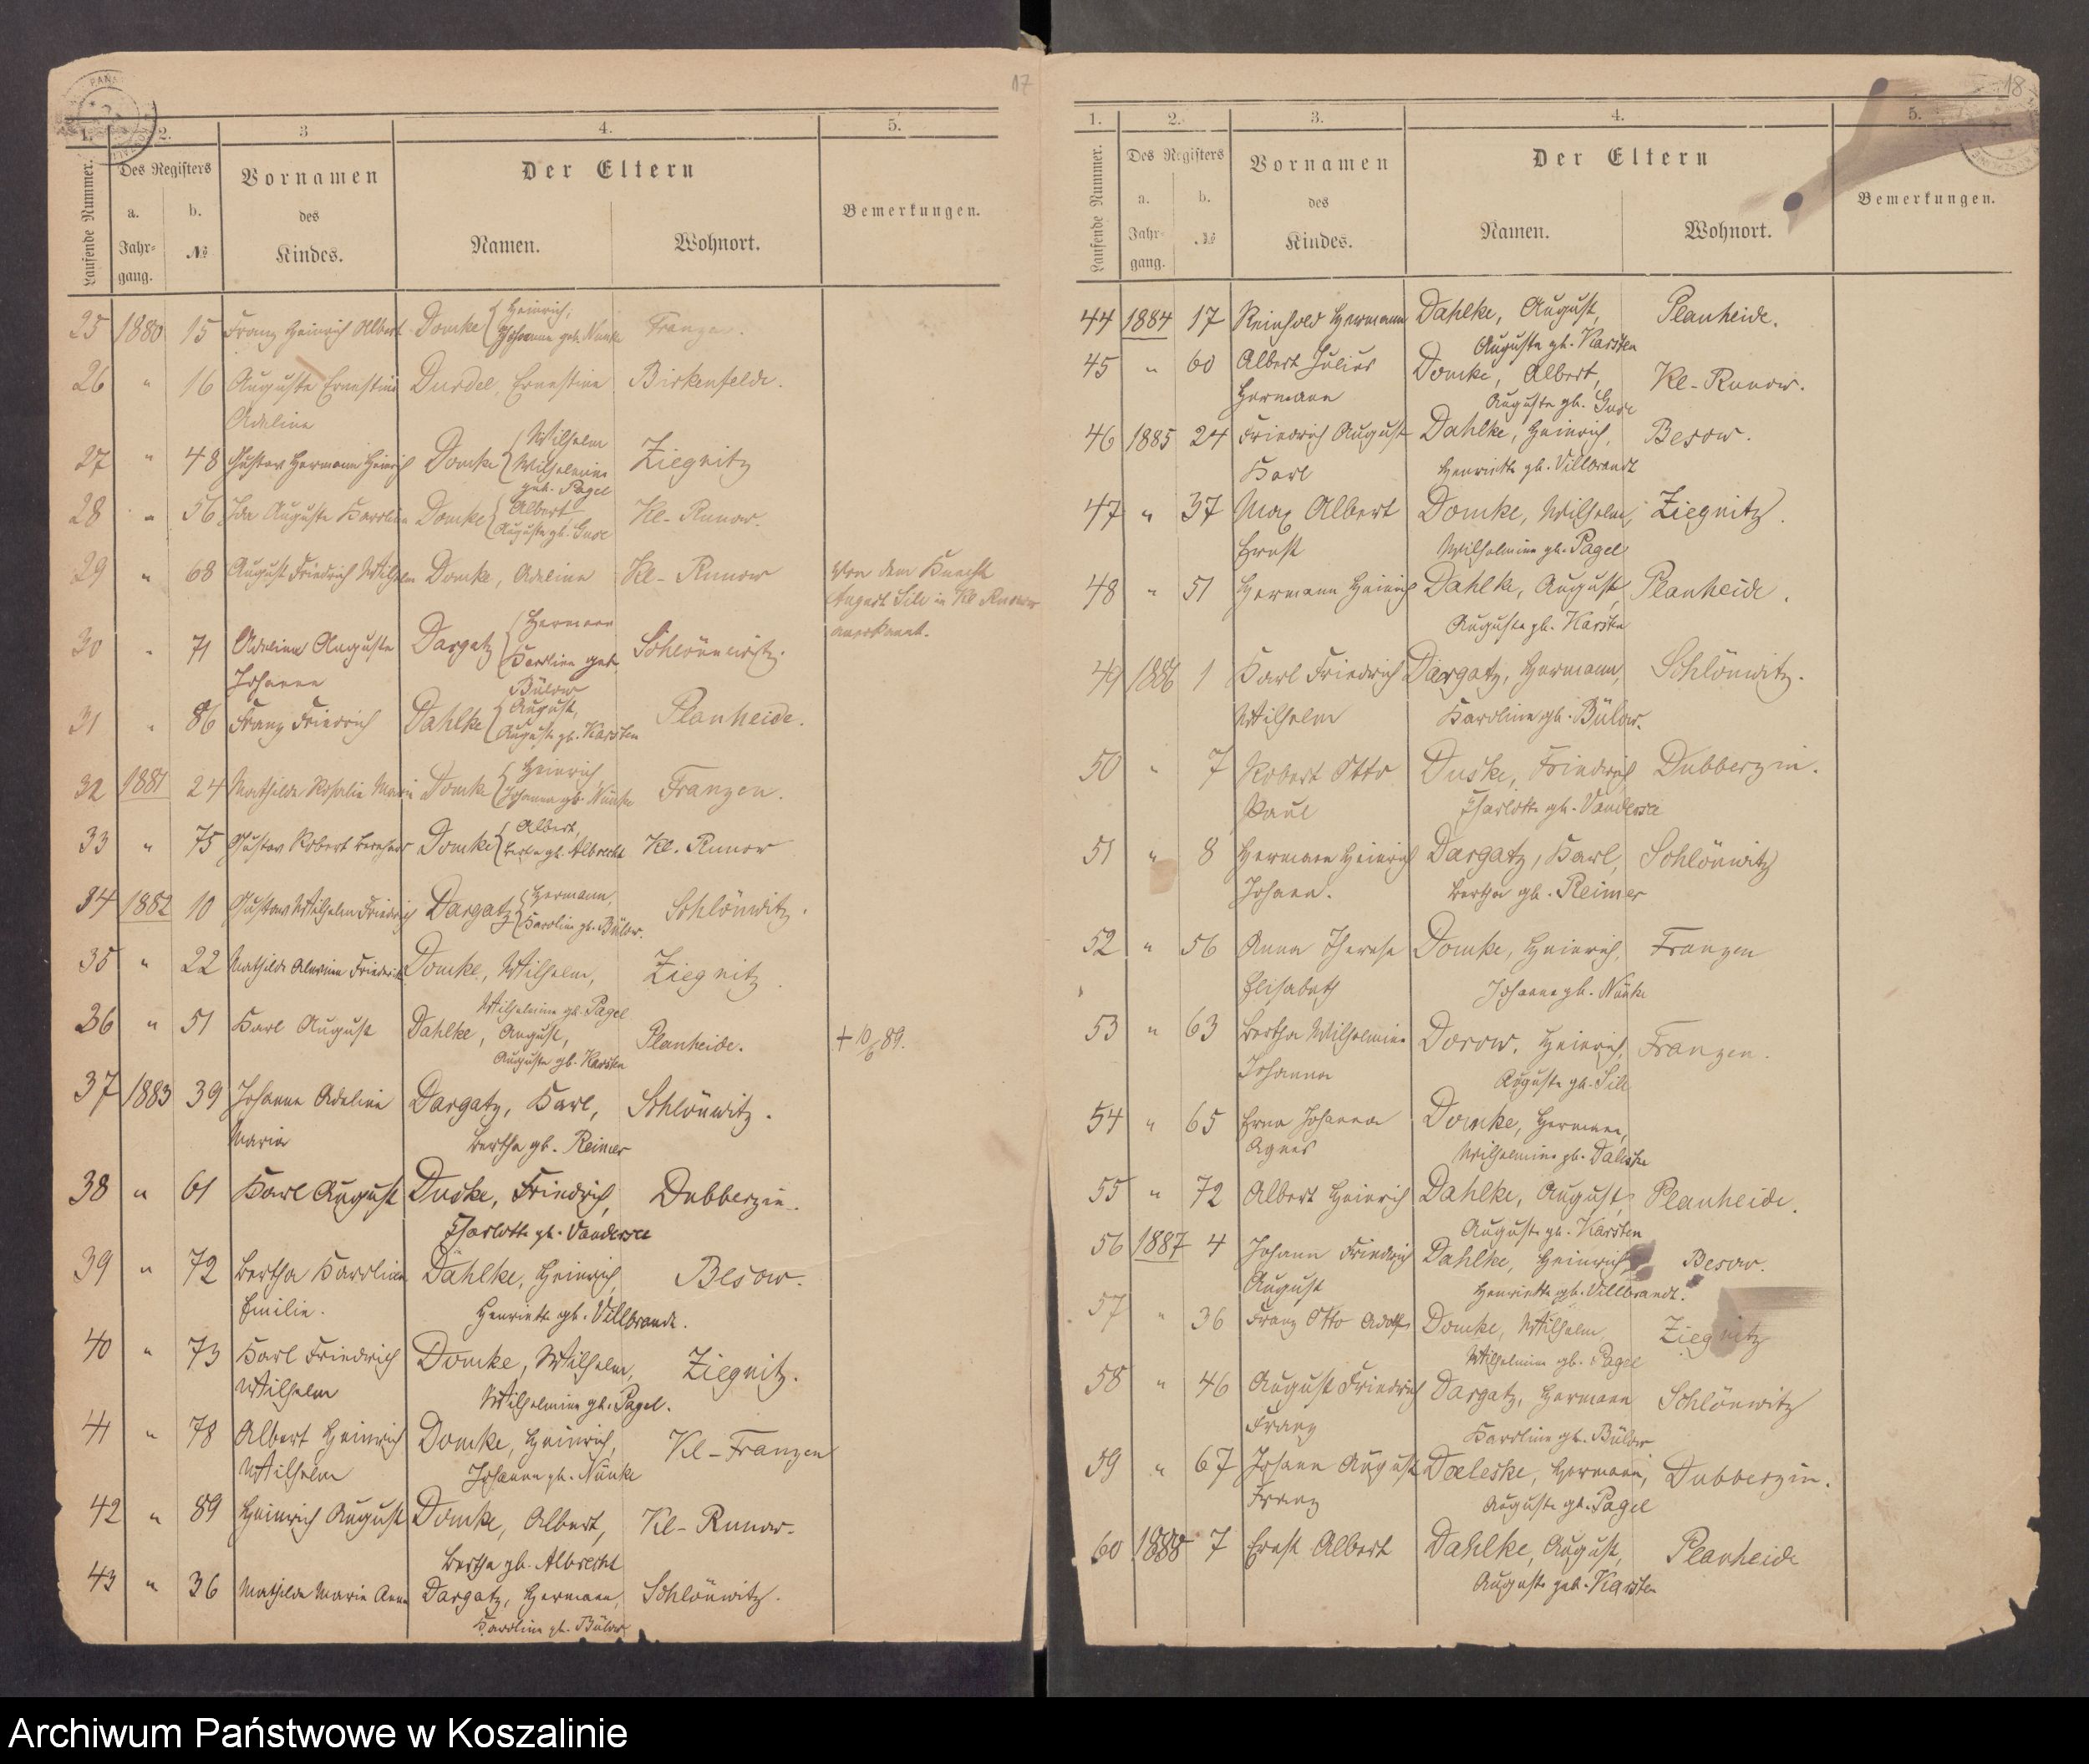 17
1.
2.
3
4.
5.
Laufende Nummer.
Des Registers
Vornamen
Der Eltern
a.
b.
des
Bemerkungen.
Jahr-
№
Kindes.
Namen.
Wohnort.
gang.
25 1880 15 Franz Heinrich Albert Domke { Heinrich, Franzen.
Johanne geb. Nünke
26 " 16 Auguste Ernestine Durdel, Ernestine Birkenfelde.
Adeline
27 " 48 Gustav Hermann Heinrich Domke { Wilhelm Ziegnitz
Wilhelmine
geb. Pagel
28 " 56 Ida Auguste Karoline Domke { Albert Kl.- Runow.
Auguste gb. Guse
29 " 68 August Friedrich Wilhelm Domke, Adeline Kl- Runow Von dem Knecht
August Sill in Kl Runow
anerkannt.
30 " 71 Adeline Auguste Dargatz { Hermann Schlönnwitz.
Johanne Karoline geb.
Bülow
31 " 86 Franz Friedrich Dahlke { August, Planheide.
Auguste gb. Karsten
32 1881 24 Mathilde Rosalie Marie Domke { Heinrich Franzen.
Johanna gb. Nünke
33 " 75 Gustav Robert Bernhard Domke { Albert, Kl. Runow
Bertha gb. Albrecht
34 1882 10 Gustav Wilhelm Friedrich Dargatz { Hermann, Schlönwitz.
Karoline gb. Bülow.
35 " 22 Mathilde Alwine Friederike Domke, Wilhelm, Ziegnitz.
Wilhelmine gb. Pagel
36 " 51 Karl August Dahlke, August, Planheide. + 10/6 89.
Auguste gb. Karsten
37 1883 39 Johanne Adeline Dargatz, Karl, Schlönwitz.
Maria Bertha gb. Reimer
38 " 61 Karl August Duske, Friedrich, Dubberzin.
Charlotte gb. Vandersee
39 " 72 Bertha Karoline Dahlke, Heinrich, Besow.
Emilie. Henriette gb. Villbrandt.
40 " 73 Karl Friedrich Domke, Wilhelm, Ziegnitz.
Wilhelm Wilhelmine gb. Pagel.
41 " 78 Albert Heinrich Domke, Heinrich, Kl-Franzen
Wilhelm Johanne gb. Nünke
42 " 89 Heinrich August Domke, Albert, Kl- Runow.
Bertha gb. Albrecht
43 " 36 Mathilde Marie Anna Dargatz, Hermann, Schlönwitz.
Karoline gb. Bülow
18
1.
2.
3.
4.
5.
Laufende Nummer.
Des Registers
Vornamen
Der Eltern
a.
b.
des
Bemerkungen.
Jahr-
№
Kindes.
Namen.
Wohnort.
gang.
44 1884 17 Reinhold Hermann Dahlke, August, Planheide.
Auguste gb. Karsten
45 " 60 Albert Julius Domke, Albert, Kl- Runow.
Hermann Auguste gb. Guse
46 1885 24 Friedrich August Dahlke, Heinrich, Besow.
Karl Henriette gb. Villbrandt
47 " 37 Max Albert Domke, Wilhelm, Ziegnitz.
Ernst Wilhelmine gb. Pagel
48 " 51 Hermann Heinrich Dahlke, August, Planheide.
Auguste gb. Karsten
49 1886 1 Karl Friedrich Dargatz, Hermann, Schlönwitz.
Wilhelm Karoline gb. Bülow.
50 " 7 Robert Otto Duske, Friedrich Dubberzin.
Paul Charlotte gb. Vandersee
51 " 8 Hermann Heinrich Dargatz, Karl, Schlönwitz
Johann. Bertha gb. Reimer
52 " 56 Anna Therese Domke, Heinrich, Franzen
Elisabeth Johanne gb. Nünke
53 " 63 Bertha Wilhelmine Dorow, Heinrich, Franzen.
Johanna Auguste gb. Sill
54 " 65 Erna Johanna Domke, Hermann,
Agnes Wilhelmine gb. Daleske
55 " 72 Albert Heinrich Dahlke, August, Planheide.
Auguste gb. Karsten
56 1887 4 Johann Friedrich Dahlke, Heinrich, Besow.
August Henriette gb. Villbrandt.
57 " 36 Franz Otto Adolf Domke, Wilhelm, Ziegnitz
Wilhelmine gb. Pagel
58 " 46 August Friedrich Dargatz, Hermann Schlönwitz
Franz Karoline gb. Bülow
59 " 67 Johann August Daleske, Hermann, Dubberzin.
Franz Auguste gb. Pagel
60 1888 7 Ernst Albert Dahlke, August, Planheide
Auguste geb. Karsten
Archiwum Państwowe w Koszalinie